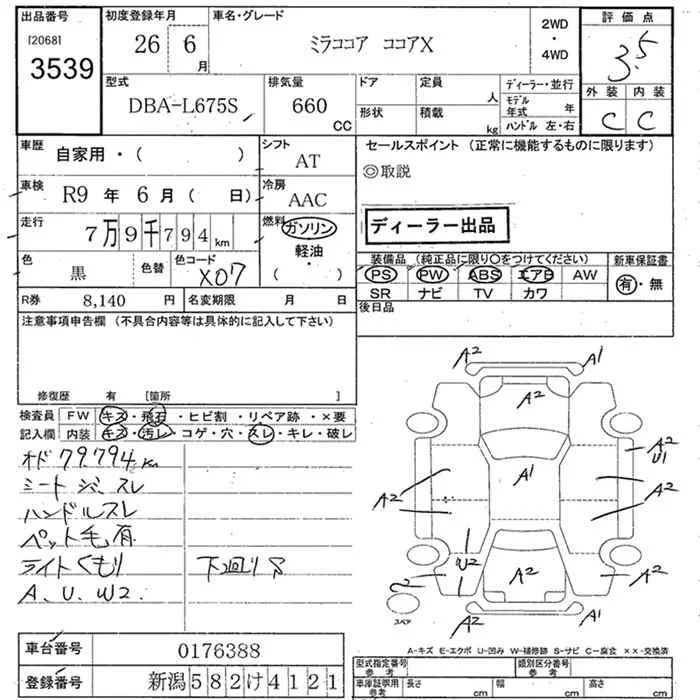 出品番号
[2068]
3539
初度登録年月
26 6 月
車名・グレード
ミラココア ココアX
2WD
・
4WD
評価点
3.5
外装 内装
C C
型式
DBA-L675S
排気量
660
CC
ドア
形状
定員
人
積載
kg
ディーラー・並行
モデル年式 年
ハンドル 左・右
車歴
自家用・( )
シフト
AT
車検
R9 年 6 月 ( 日)
冷房
AAC
走行
7万9千794km
燃料
ガソリン
軽油
・
( )
色
黒
色替
色コード
X07
R券
8,140 円
名変期限 月 日
セールスポイント(正常に機能するものに限ります)
◎取説
ディーラー出品
装備品 (純正品に限り○をつけてください)
PS PW ABS エアB AW
SR ナビ TV カワ
新車保証書
有・無
後日品
注意事項申告欄(不具合内容等は具体的に記入して下さい)
修復歴 有 [箇所 ]
検査員 FW キズ・飛石・ヒビ割・リペア跡・×要
記入欄 内装 キズ・汚レ・コゲ・穴・スレ・キレ・破レ
オド 79.794 Km
シート シミ スレ
ハンドルスレ
ペット毛有
ライトくもり
下廻りサ
A、U、W2.
A2 A1
A2
A2
U1
A1
A2 A2
W2
A2
A2
A2 A1
スペア
A-キズ E-エクボ U-凹み W-補修跡 S-サビ C-腐食 ××-交換済
車台番号
0176388
登録番号
新潟582け4121
型式指定番号
参考
類別区分番号
参考
車庫証明用
参考
長さ cm
幅 cm
高さ cm